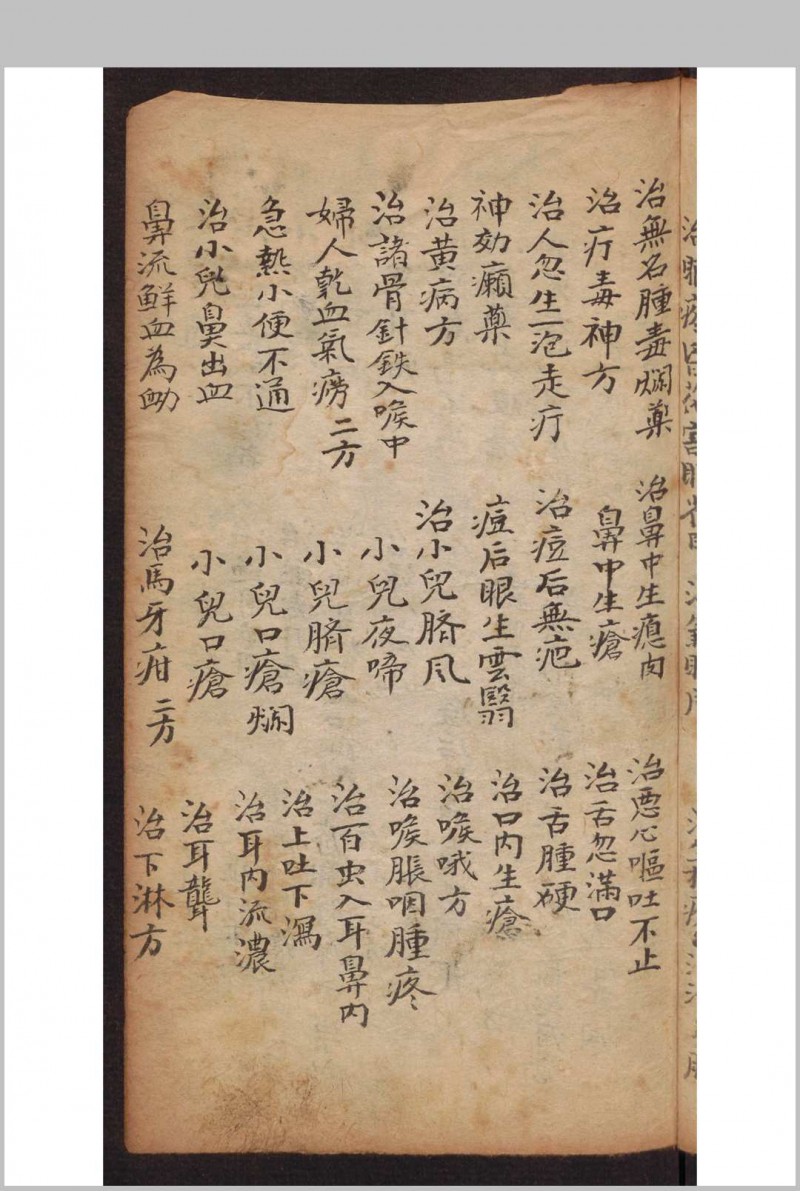 治無名腫毒爛藥
治疔毒神方
治人忽生一泡走疔
神効癩藥
治黄病方
治諸骨針鉄入喉中
婦人乾血氣癆 二方
急熱小便不通
治小兒鼻出血
鼻流鮮血為衂
治鼻中生瘜肉
鼻中生瘡
治痘后無疤
痘后眼生雲翳
治小兒臍风
小兒夜啼
小兒臍瘡
小兒口瘡爛
小兒口瘡
治馬牙疳 二方
治悪心嘔吐不止
治舌忽滿口
治舌腫硬
治口内生瘡
治喉哦方
治喉脹咽腫疼
治百虫入耳鼻内
治上吐下瀉
治耳内流濃
治耳聾
治下淋方